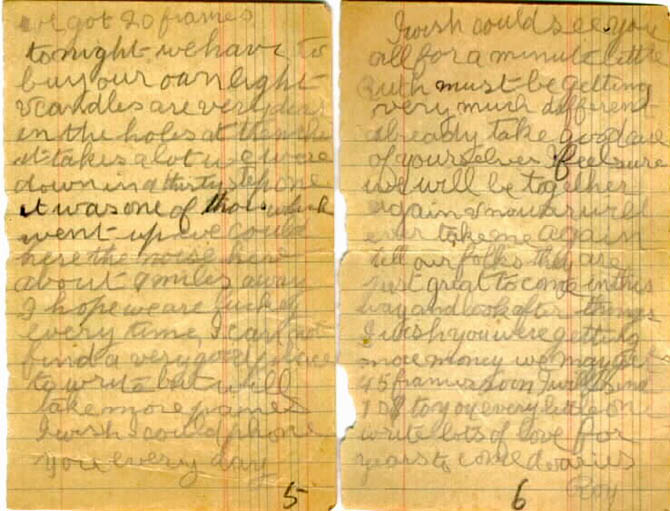 got 20 frames
tonight we have to
buy our own light
& candles are very dear
in the holes at the
it takes a lot we were
down in a thirty step one
it was one of those which
went up we could
here the noise here
about 9 miles away
I hope we are lucky
every time, I can not
find a very good place
to write but will
take more pains
I wish I could phone
you every day
5
I wish could see you
all for a minute little
Ruth must be getting
very much different
already take good care
of yourselves I feel sure
we will be together
again & no war will
ever take me again
tell our folks they are
just great to come in this
way and look after things
I wish you were getting
more money we may get
45 francs soon I will send
to you every little one
write lots of love for
years to come dearies
Roy
6